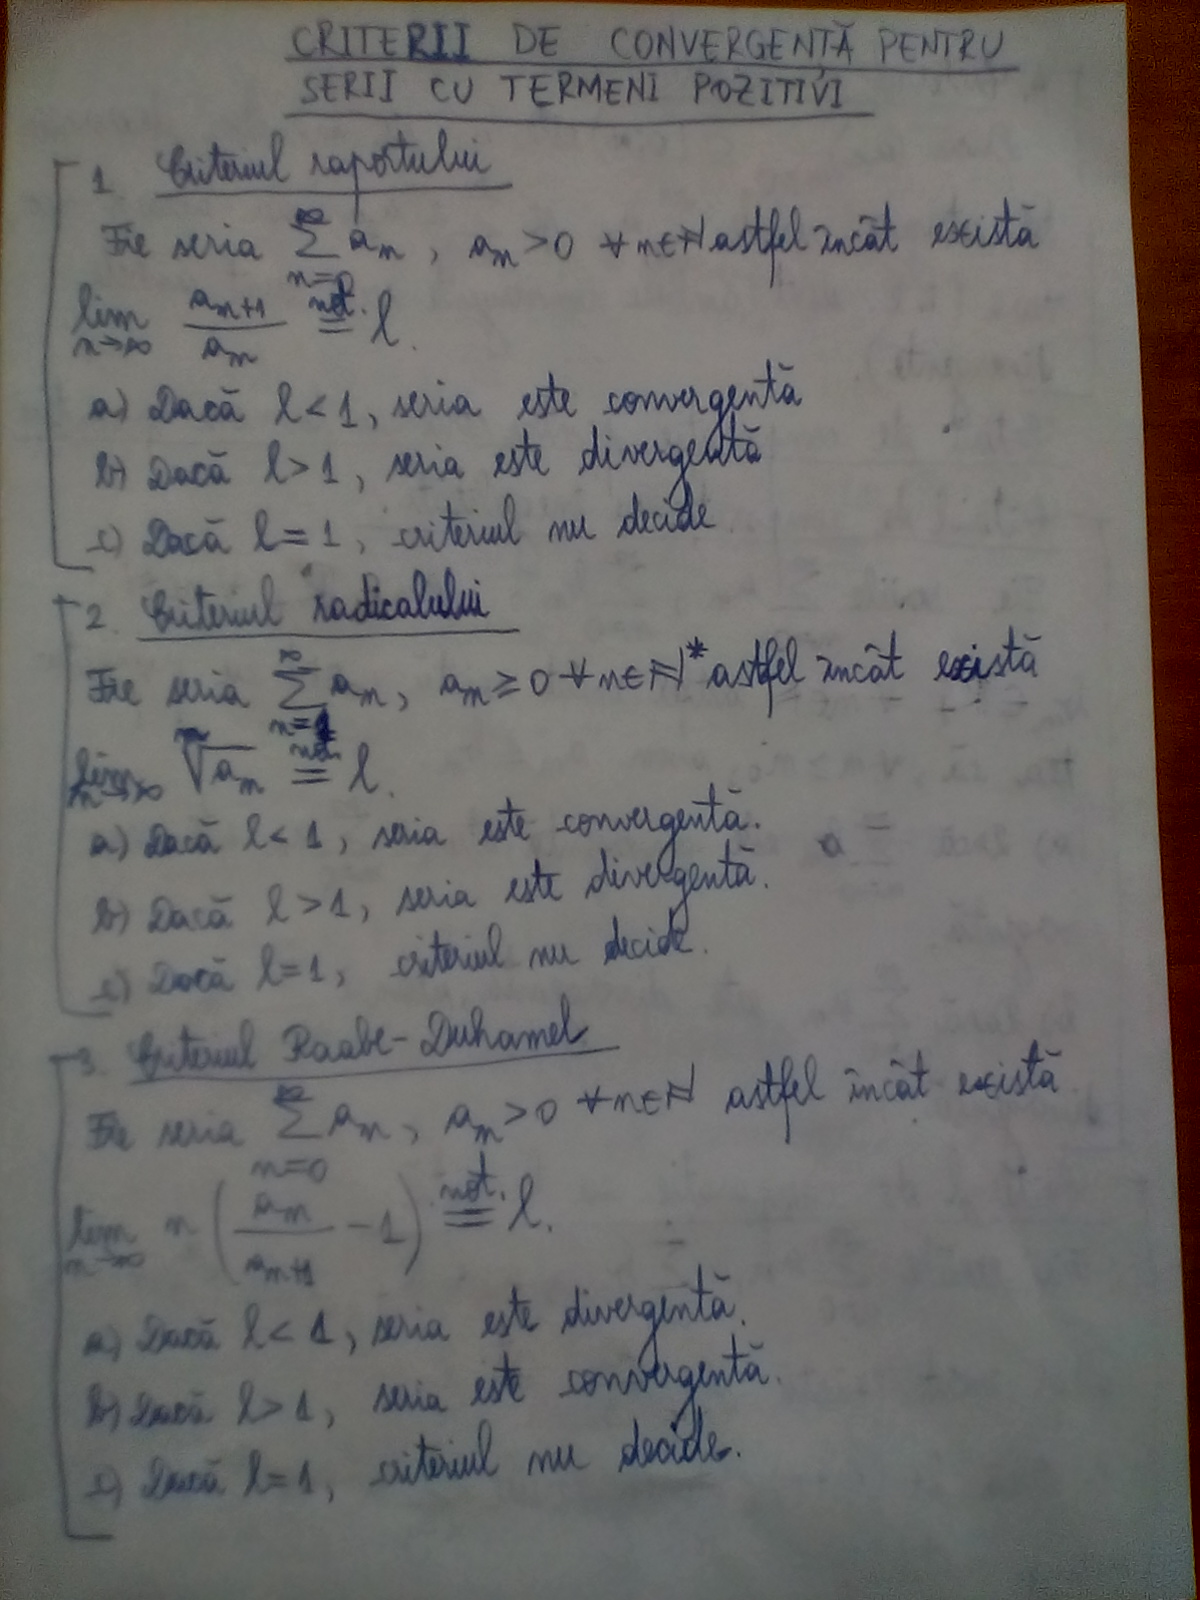 CRITERII DE CONVERGENȚĂ PENTRU
SERII CU TERMENI POZITIVI
1. Criteriul raportului
Fie seria ∑_{n=0}^{∞} a_n, a_n > 0 ∀ n∈ℕ astfel încât există
lim_{n→∞} a_{n+1}/a_n =^{not.} l.
a) Dacă l < 1, seria este convergentă
b) Dacă l > 1, seria este divergentă
c) Dacă l = 1, criteriul nu decide
2. Criteriul radicalului
Fie seria ∑_{n=1}^{∞} a_n, a_n ≥ 0 ∀ n∈ℕ* astfel încât există
lim_{n→∞} ⁿ√a_n =^{not.} l.
a) Dacă l < 1, seria este convergentă.
b) Dacă l > 1, seria este divergentă.
c) Dacă l = 1, criteriul nu decide.
3. Criteriul Raabe-Duhamel
Fie seria ∑_{n=0}^{∞} a_n, a_n > 0 ∀ n∈ℕ astfel încât există
lim_{n→∞} n (a_n/a_{n+1} - 1) =^{not.} l.
a) Dacă l < 1, seria este divergentă.
b) Dacă l > 1, seria este convergentă.
c) Dacă l = 1, criteriul nu decide.